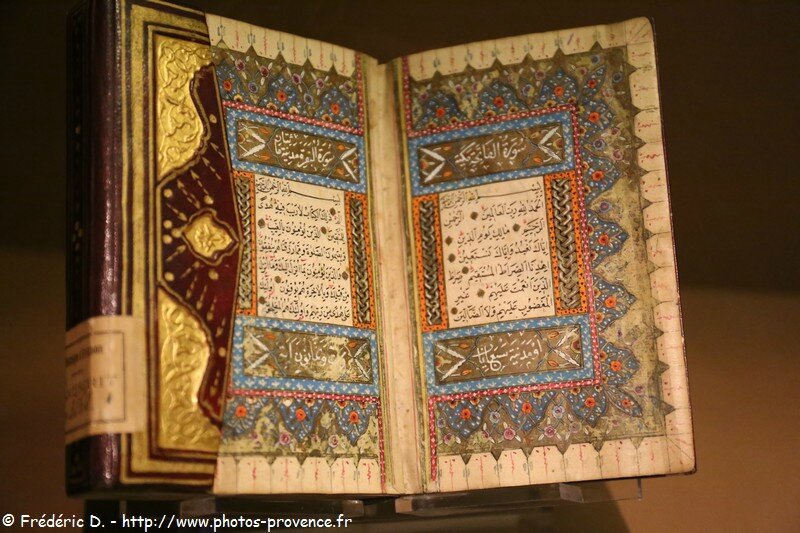 سورة الفاتحة مكية
بسم الله الرحمن الرحيم
الحمد لله رب العالمين الرحمن
الرحيم مالك يوم الدين
إياك نعبد وإياك نستعين
اهدنا الصراط المستقيم صراط
الذين أنعمت عليهم غير
المغضوب عليهم ولا الضالين
او مدنية سبع ايات
سورة البقرة مدنية مائتان
بسم الله الرحمن الرحيم
الم ذلك الكتاب لا ريب فيه هدى
للمتقين الذين يؤمنون بالغيب
ويقيمون الصلوة ومما رزقناهم ينفقون
والذين يؤمنون بما انزل اليك وما انزل
من قبلك وبالاخرة هم يوقنون
على هدى من ربهم واولئك هم المفلحون
وثمانون
© Frédéric D. - http://www.photos-provence.fr